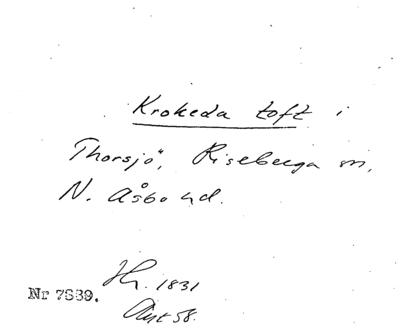 Krokeda toft i
Thorsjö, Riseberga sn,
N. Åsbo hd.
1831
Nr 7839.
58.